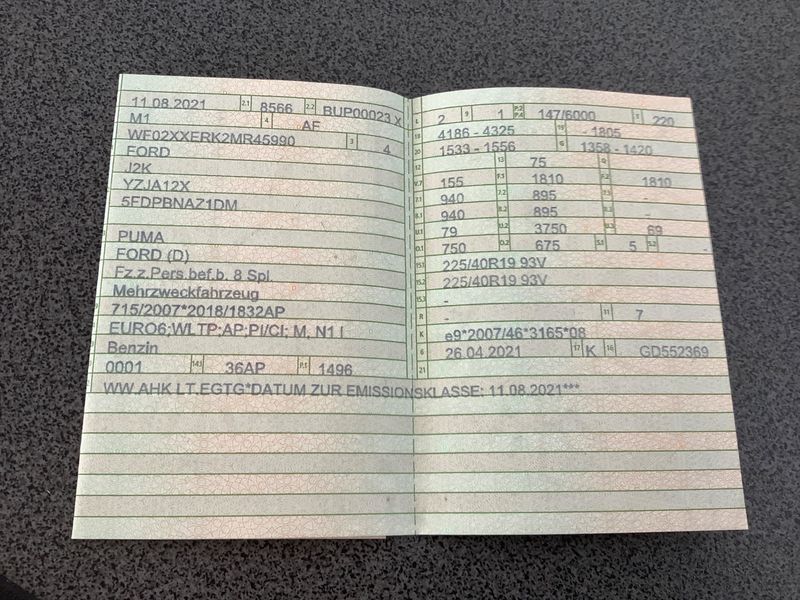 11.08.2021 2.1 8566 2.2 BUP00023 X
M1 4 AF
WF02XXERK2MR45990 3 4
FORD
J2K
YZJA12X
5FDPBNAZ1DM
PUMA
FORD (D)
Fz.z.Pers.bef.b. 8 Spl.
Mehrzweckfahrzeug
715/2007*2018/1832AP
EURO6;WLTP;AP;PI/CI; M, N1 I
Benzin
0001 14.1 36AP P.1 1496
L 2 9 1 P.2 P.4 147/6000 T 220
18 4186 - 4325 19 - 1805
20 1533 - 1556 G 1358 - 1420
12 - 13 75 Q -
V.7 155 F.1 1810 F.2 1810
7.1 940 7.2 895 7.3 -
8.1 940 8.2 895 8.3 -
U.1 79 U.2 3750 U.3 69
O.1 750 O.2 675 S.1 5 S.2 -
15.1 225/40R19 93V
15.2 225/40R19 93V
15.3 -
R - 11 7
K e9*2007/46*3165*08
6 26.04.2021 17 K 16 GD552369
21
WW.AHK LT.EGTG*DATUM ZUR EMISSIONSKLASSE: 11.08.2021***